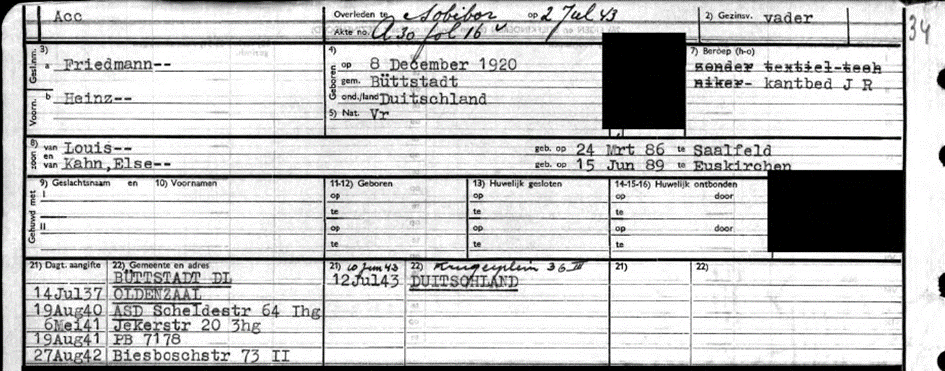 Acc
Overleden te Sobibor op 2 Jul 43
Akte no. A 30 fol 16 v
2) Gezinsv. vader
34
3)
Gesl.nm. a Friedmann--
Voorn. b Heinz--
4)
Geboren op 8 December 1920
gem. Büttstadt
ond./land Duitschland
5) Nat. Vr
7) Beroep (h-o)
zonder textiel-tech
niker- kantbed J R
8) zoon van Louis-- geb. op 24 Mrt 86 te Saalfeld
en van Kahn, Else-- geb. op 15 Jun 89 te Euskirchen
9) Geslachtsnaam en 10) Voornamen 11-12) Geboren 13) Huwelijk gesloten 14-15-16) Huwelijk ontbonden
Gehuwd met I op op op door
te te te
II op op op door
te te te
21) Dagt. aangifte 22) Gemeente en adres 21) 10 Jun 43 22) Krugerplein 36 III 21) 22)
BÜTTSTADT DL 12Jul43 DUITSCHLAND
14Jul37 OLDENZAAL
19Aug40 ASD Scheldestr 64 Ihg
6Mei41 Jekerstr 20 3hg
19Aug41 PB 7178
27Aug42 Biesboschstr 73 II